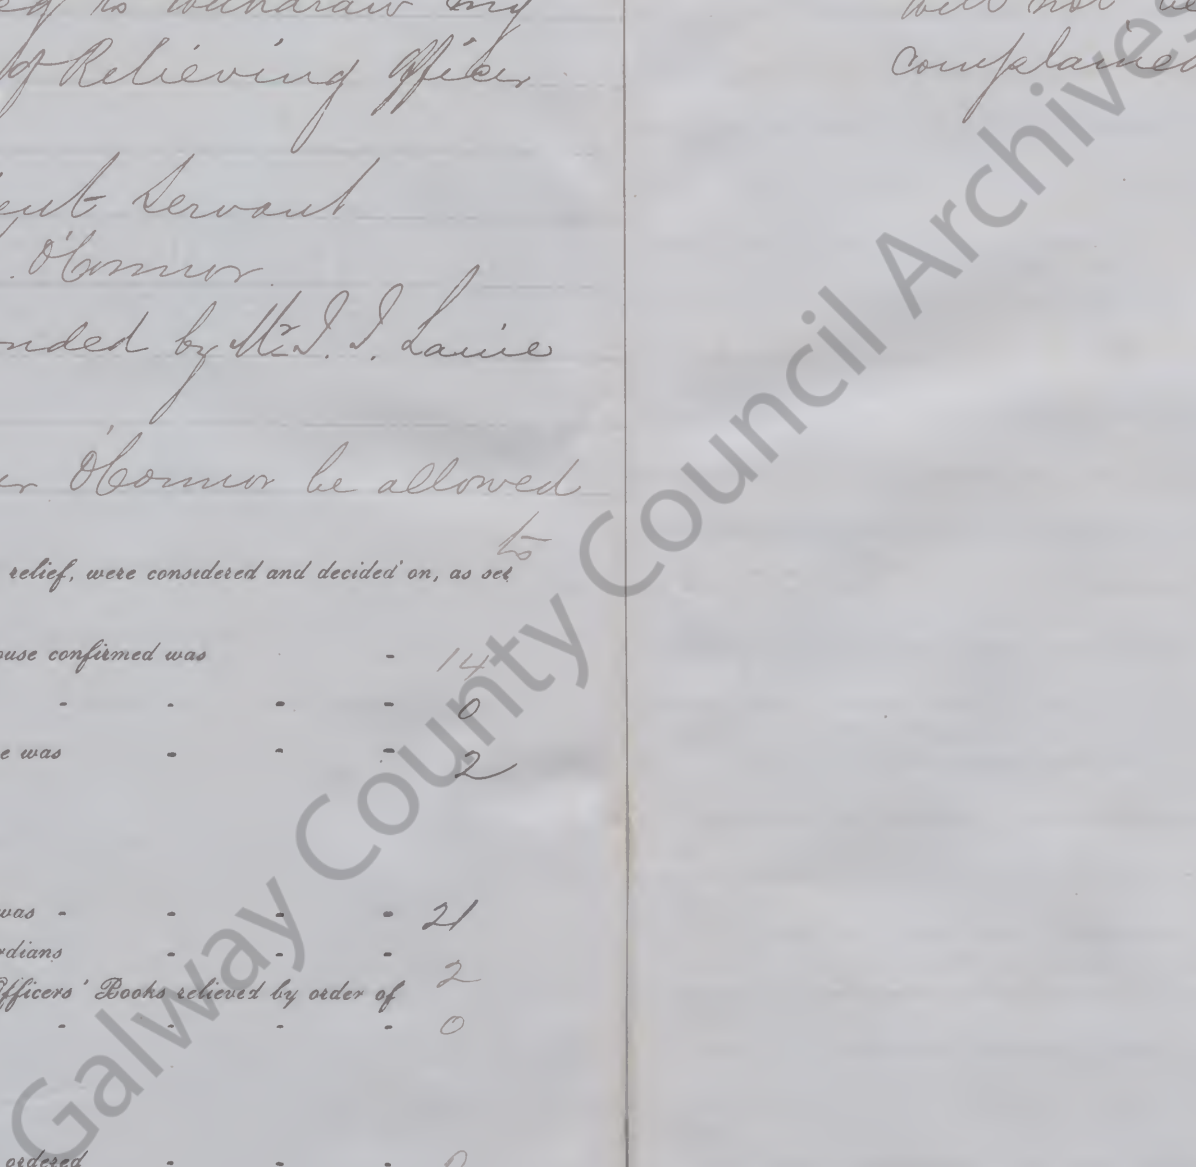 to withdraw my
of Relieving Officer
ient Servant
. O'Connor
nded by Mr. J. J. Laine
er O'Connor be allowed
to
relief, were considered and decided on, as set
ouse confirmed was - 14
- - - - 0
e was - - - 2
was - - - - 21
rdians - - - 2
Officers' Books relieved by order of
- - - - 0
ordered - - - 0
will not be
complained
Galway County Council Archives